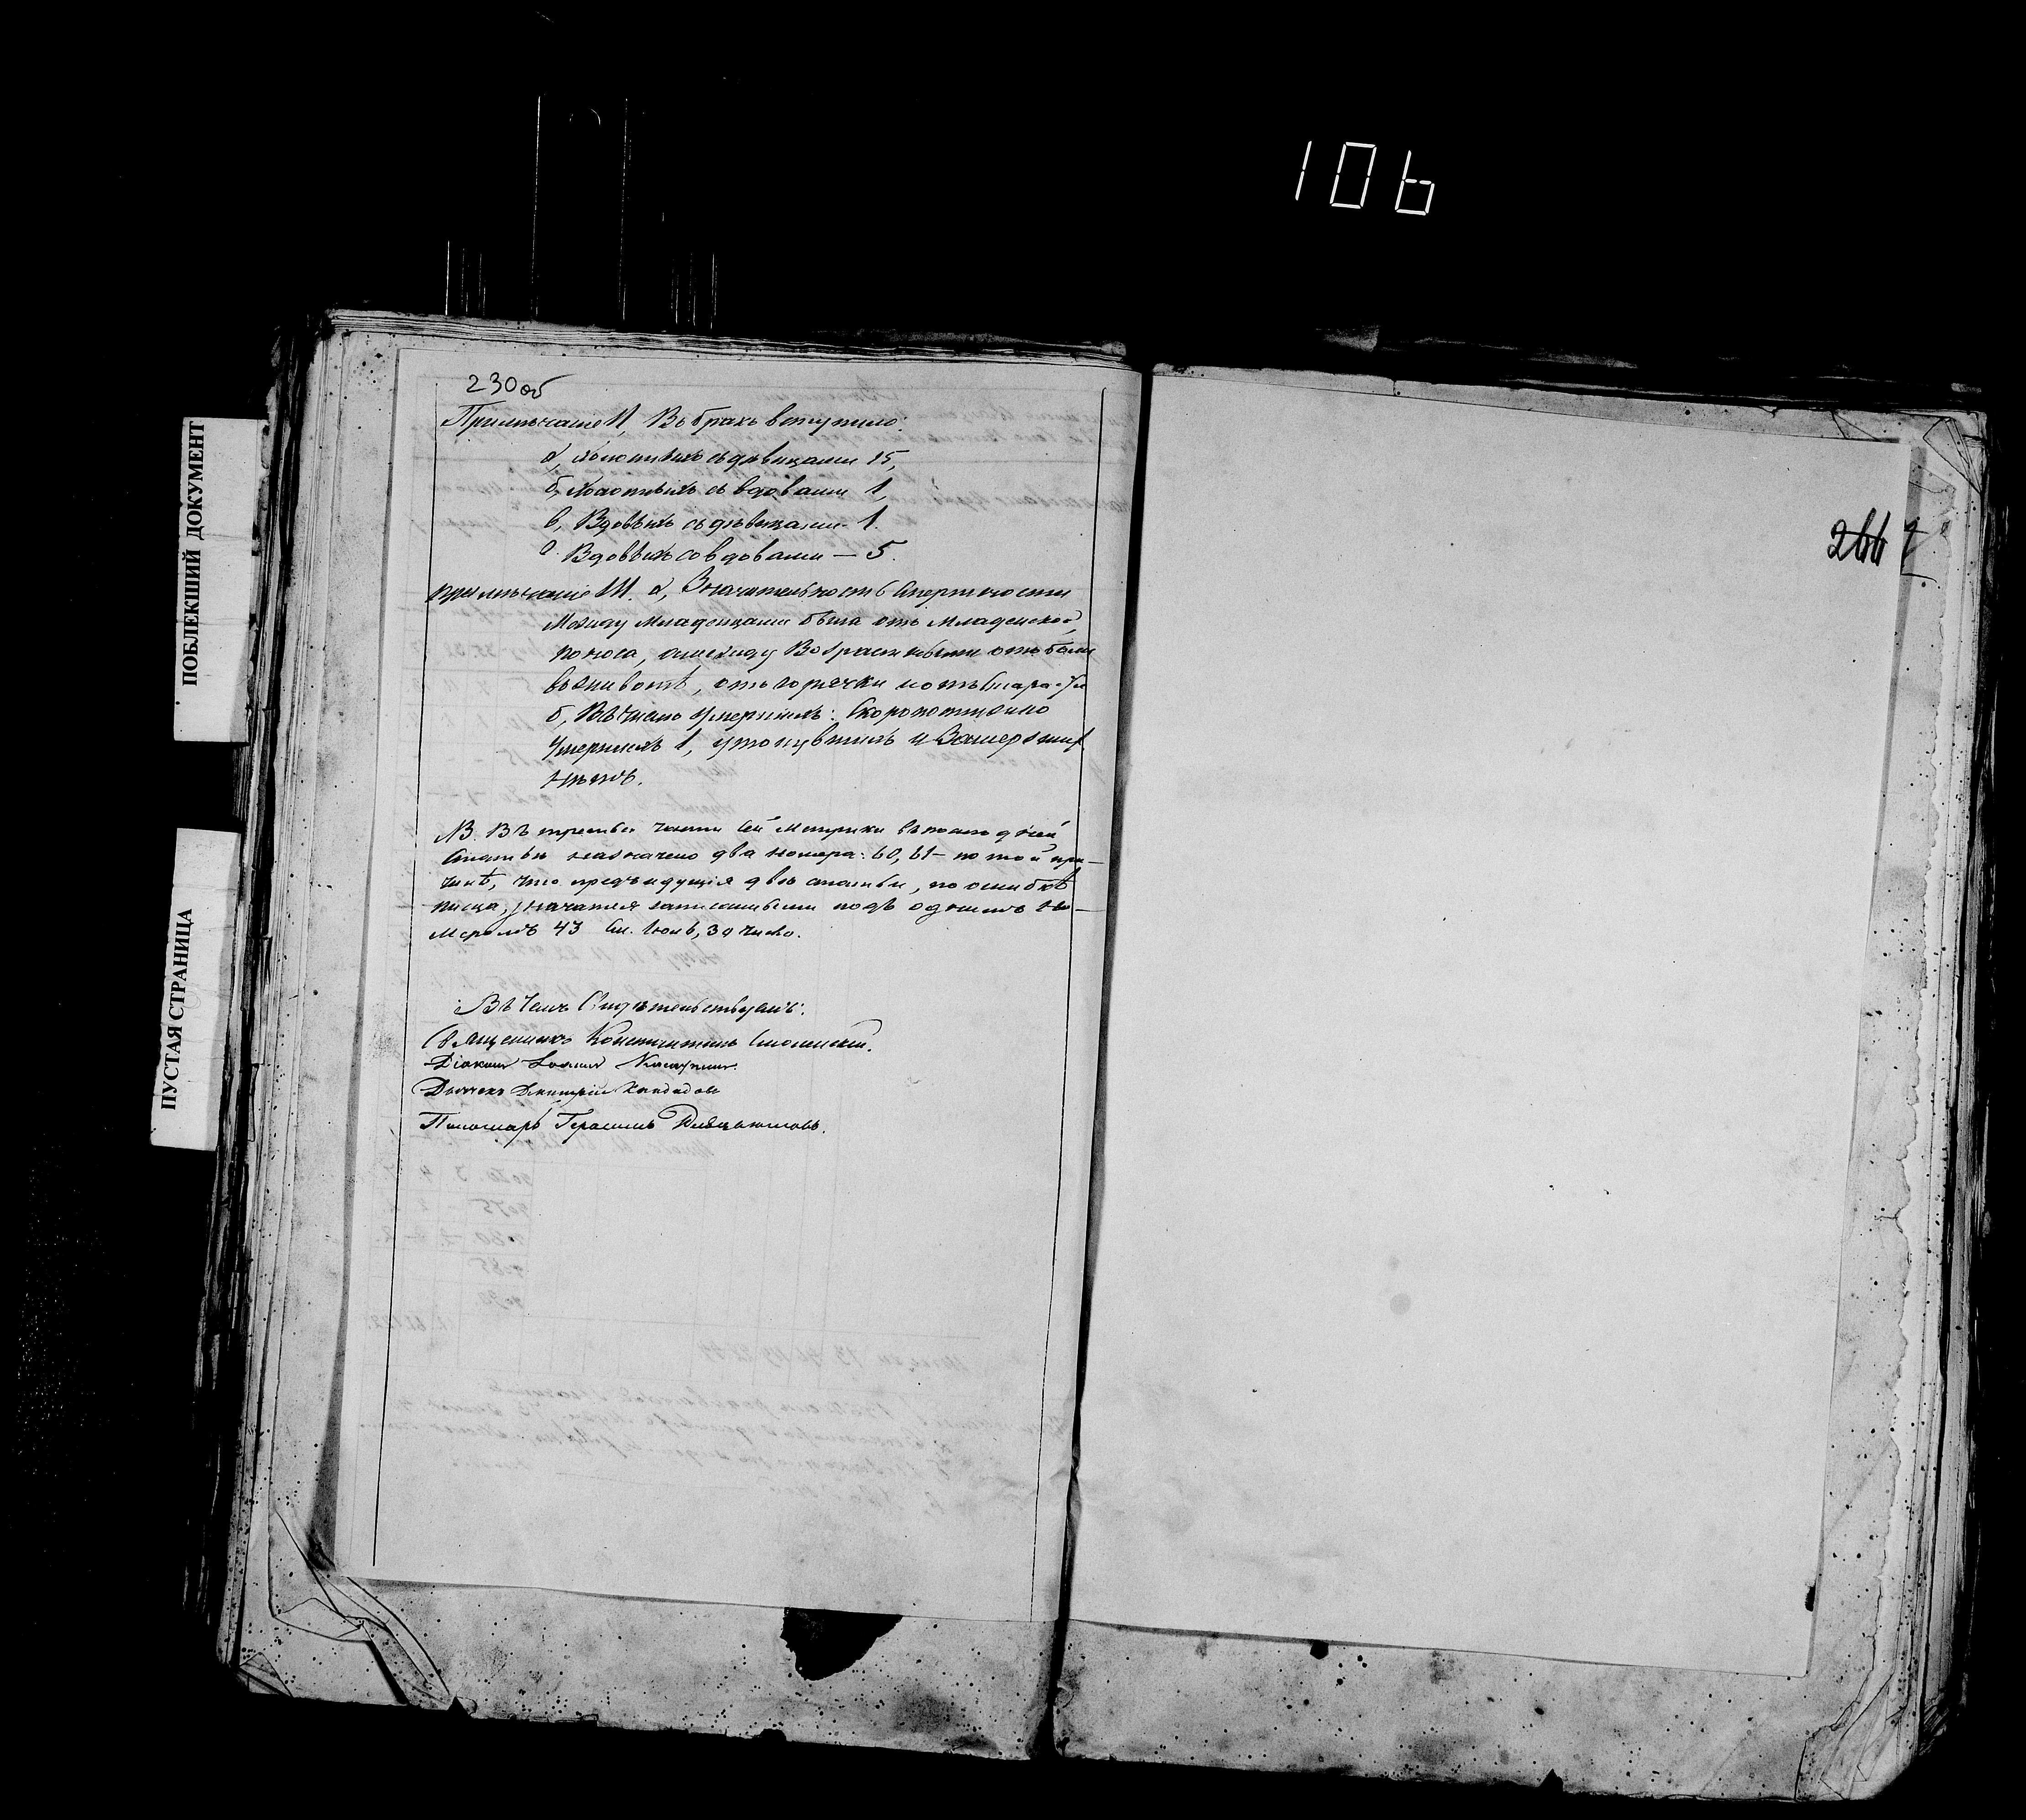 106
ПОБЛЕКШИЙ ДОКУМЕНТ
ПУСТАЯ СТРАНИЦА
230 об
Примѣчаніе II, Въ бракъ вступило:
а, холостыхъ съ дѣвицами 15,
б, Холостыхъ съ вдовами 1,
в, Вдовыхъ съ дѣвицами - 1.
г. Вдовыхъ со вдовами — 5.
Примѣчаніе III. а, Значительность Смертности
Между Младенцами была отъ младенской
поноса, а между Возрастными отъ боли
въ животѣ, отъ горячки и отъ
б, Въ числѣ Умершихъ: Скоропостижно
Умершихъ 1, утонувшихъ и Замерзших
нѣтъ.
NB. Въ третьей части сей Метрики въ послѣдней
Статьѣ назначено два номера: 60, 61 – по той при–
чинѣ, что предъидущія двѣ статьи, по ошибкѣ
писца, значатся записанными подъ однимъ Но–
меромъ 43 См. Іюнь, 30 число.
Въ чемъ Свидѣтельствуемъ:
Священникъ Константинъ Смоленскій.
Діаконъ Іоаннъ
Дьячекъ Дмитрій
Пономарь Герасимъ
266